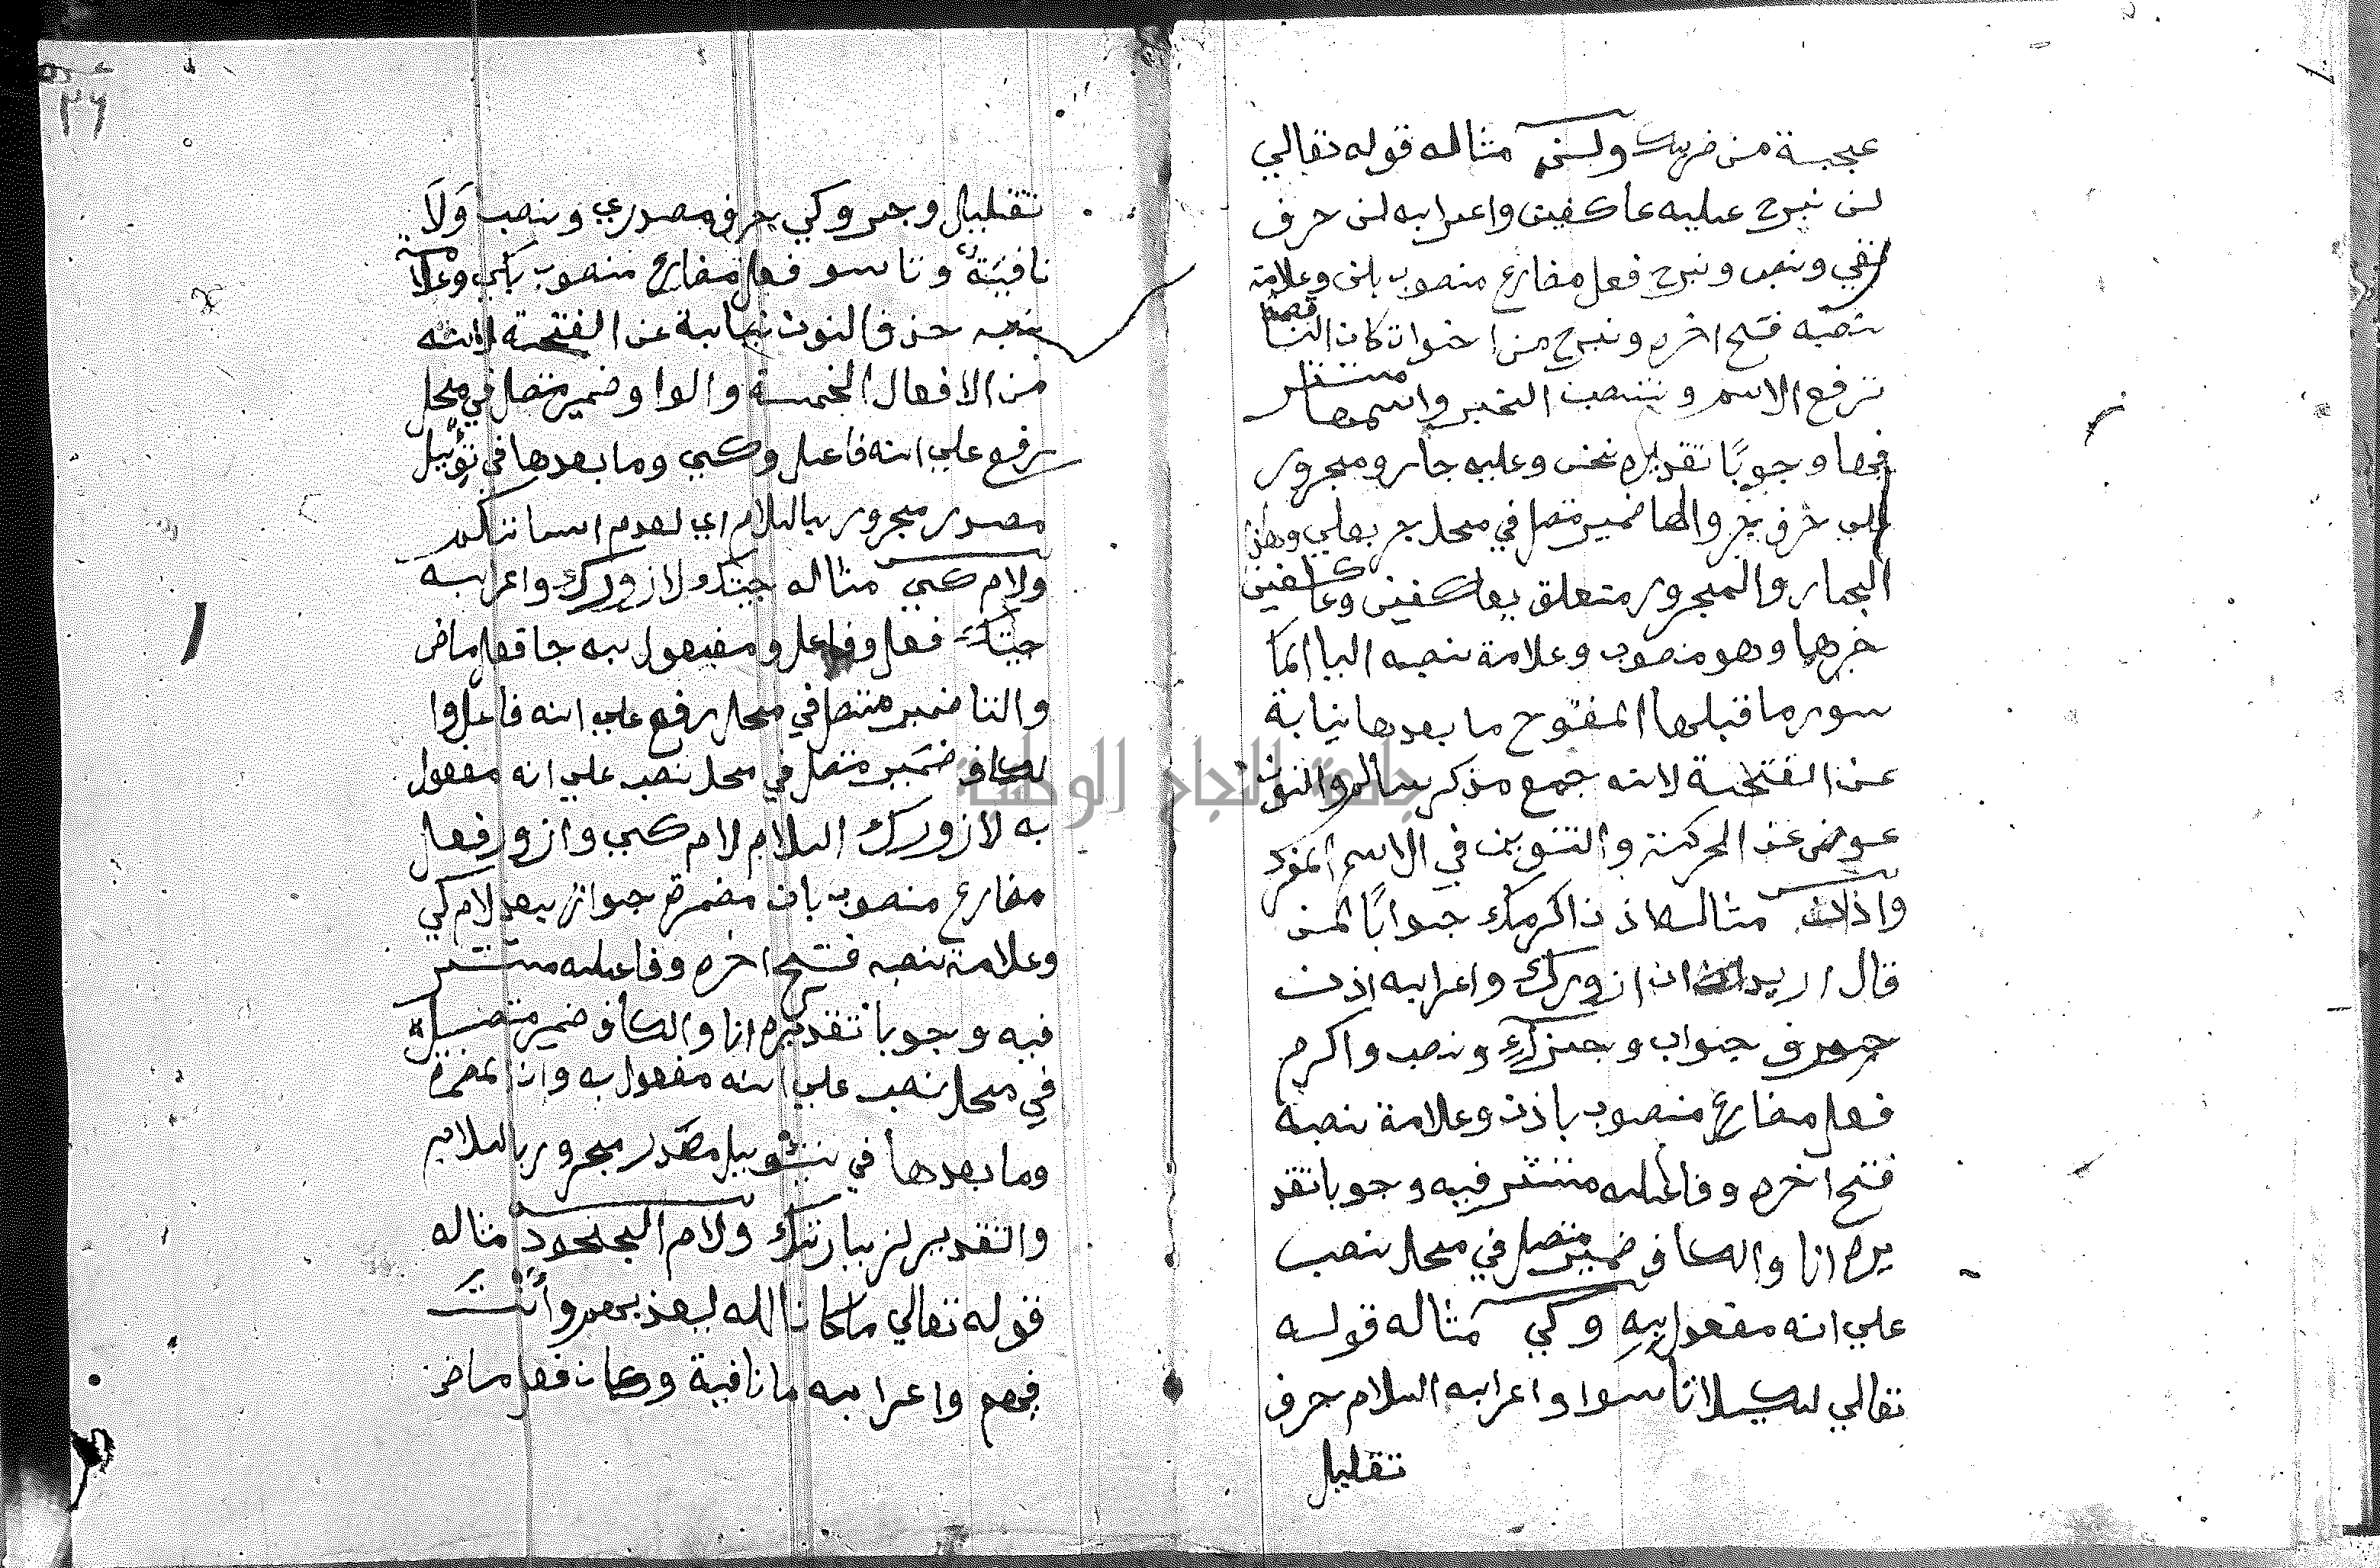 عجبت من ضربك ولن مثاله قوله تعالي
لن نبرح عليه عاكفين واعرابه لن حرف
نفي ونصب ونبرح فعل مضارع منصوب بلن وعلامة
نصبه فتح اخره ونبرح من اخوات كان الناقصة
ترفع الاسم وتنصب الخبر واسمها مستتر
فيها وجوبًا تقديره نحن وعليه جار ومجرور
علي حرف جر والها ضمير متصل في محل جر بعلي وهذا
الجار والمجرور متعلق بعاكفين وعاكفين
خبرها وهو منصوب وعلامة نصبه اليا المكـ
سور ما قبلها المفتوح ما بعدها نيابة
عن الفتحة لانه جمع مذكر سالم والنون
عوض عن الحركة والتنوين في الاسم المفرد
واذن مثالها اذن اكرمك جوابًا لمن
قال اريد ان ازورك واعرابه اذن
حرف جواب وجزاء ونصب واكرم
فعل مضارع منصوب باذن وعلامة نصبه
فتح اخره وفاعله مستتر فيه وجوبا تقد
يره انا والكاف ضمير متصل في محل نصب
علي انه مفعول به وكي مثاله قوله
تعالي لكيلا تاسوا واعرابه اللام حرف
تقليل
٢٦
تقليل وجر وكي حرف مصدري ونصب وَلَا
نافية وتاسو فعل مضارع منصوب بكي وعلامة
نصبه حذف النون نيابة عن الفتحة لانه
من الافعال الخمسة والواو ضمير متصل في محل
رفع علي انه فاعل وكي وما بعدها في تؤيل
مصدر مجرور باللام اي لعدم اساتكم
ولام كي مثاله جيتك لازورك واعرابه
جيتك فعل وفاعل ومفعول به جا فعل ماض
والتا ضمير متصل في محل رفع علي انه فاعل وا
لكاف ضمير متصل في محل نصب علي انه مفعول
به لازورك اللام لام كي وازور فعل
مضارع منصوب بان مضمرة جواز بعد لام كي
وعلامة نصبه فتح اخره وفاعله مستتر
فيه وجوبا تقديره انا والكاف ضمير متصل
في محل نصب علي انه مفعول به وان المضمرة
وما بعدها في تئويل مصدر مجرور باللام
والتقدير لزيارتك ولام الجحود مثاله
قوله تعالي ما كان الله ليعذبهم وأنت
فيهم واعرابه ما نافية وكان فعل ماض
جامعة النجاح الوطنية